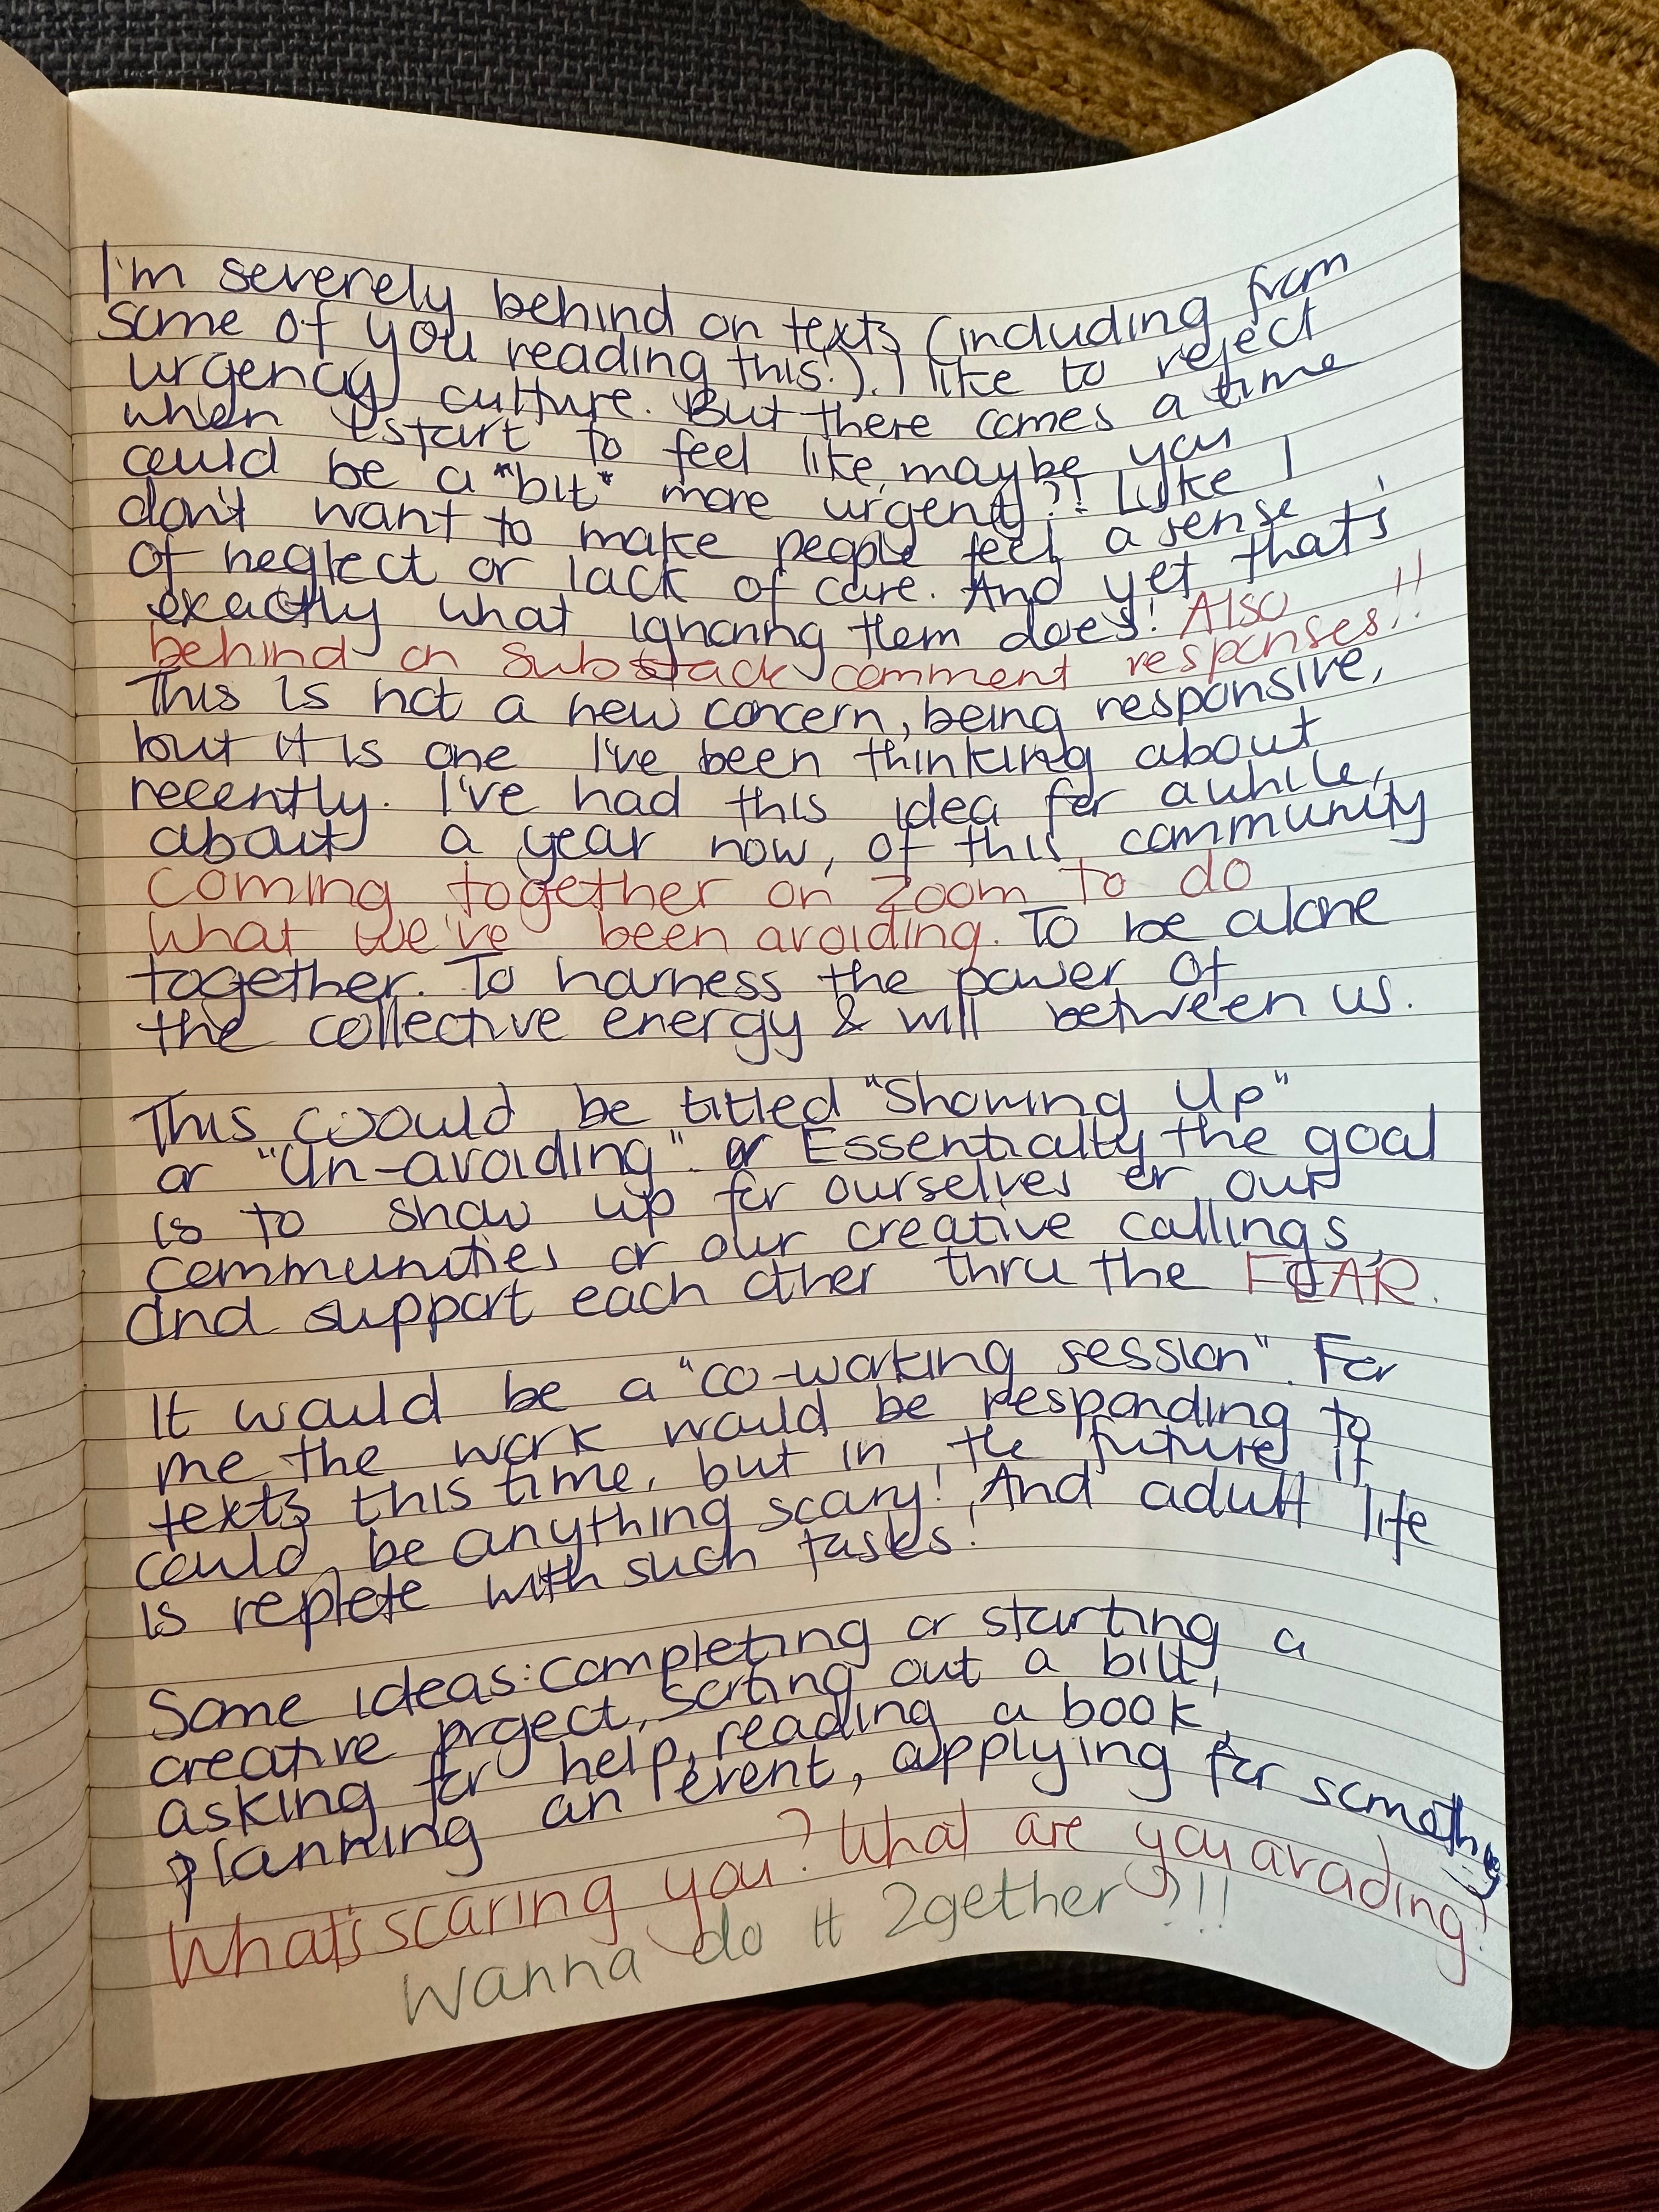 I'm severely behind on texts (including from
some of you reading this!). I like to reject
urgency culture. But there comes a time
when I start to feel like, maybe you
could be a *bit* more urgent?! Like I
don't want to make people feel a sense
of neglect or lack of care. And yet that's
exactly what ignoring them does! Also
behind on Substack comment responses!!
This is not a new concern, being responsive,
but it is one I've been thinking about
recently. I've had this idea for awhile,
about a year now, of this community
coming together on Zoom to do
what we've been avoiding. To be alone
together. To harness the power of
the collective energy & will between us.
This would be titled "Showing Up"
or "Un-avoiding". or Essentially the goal
is to show up for ourselves or our
communities or our creative callings,
and support each other thru the FEAR.
It would be a "co-working session". For
me the work would be responding to
texts this time, but in the future it
could be anything scary! And adult life
is replete with such tasks!
Some ideas: completing or starting a
creative project, sorting out a bill,
asking for help, reading a book,
planning an event, applying for something
What's scaring you? What are you avoiding?
Wanna do it 2gether?!!